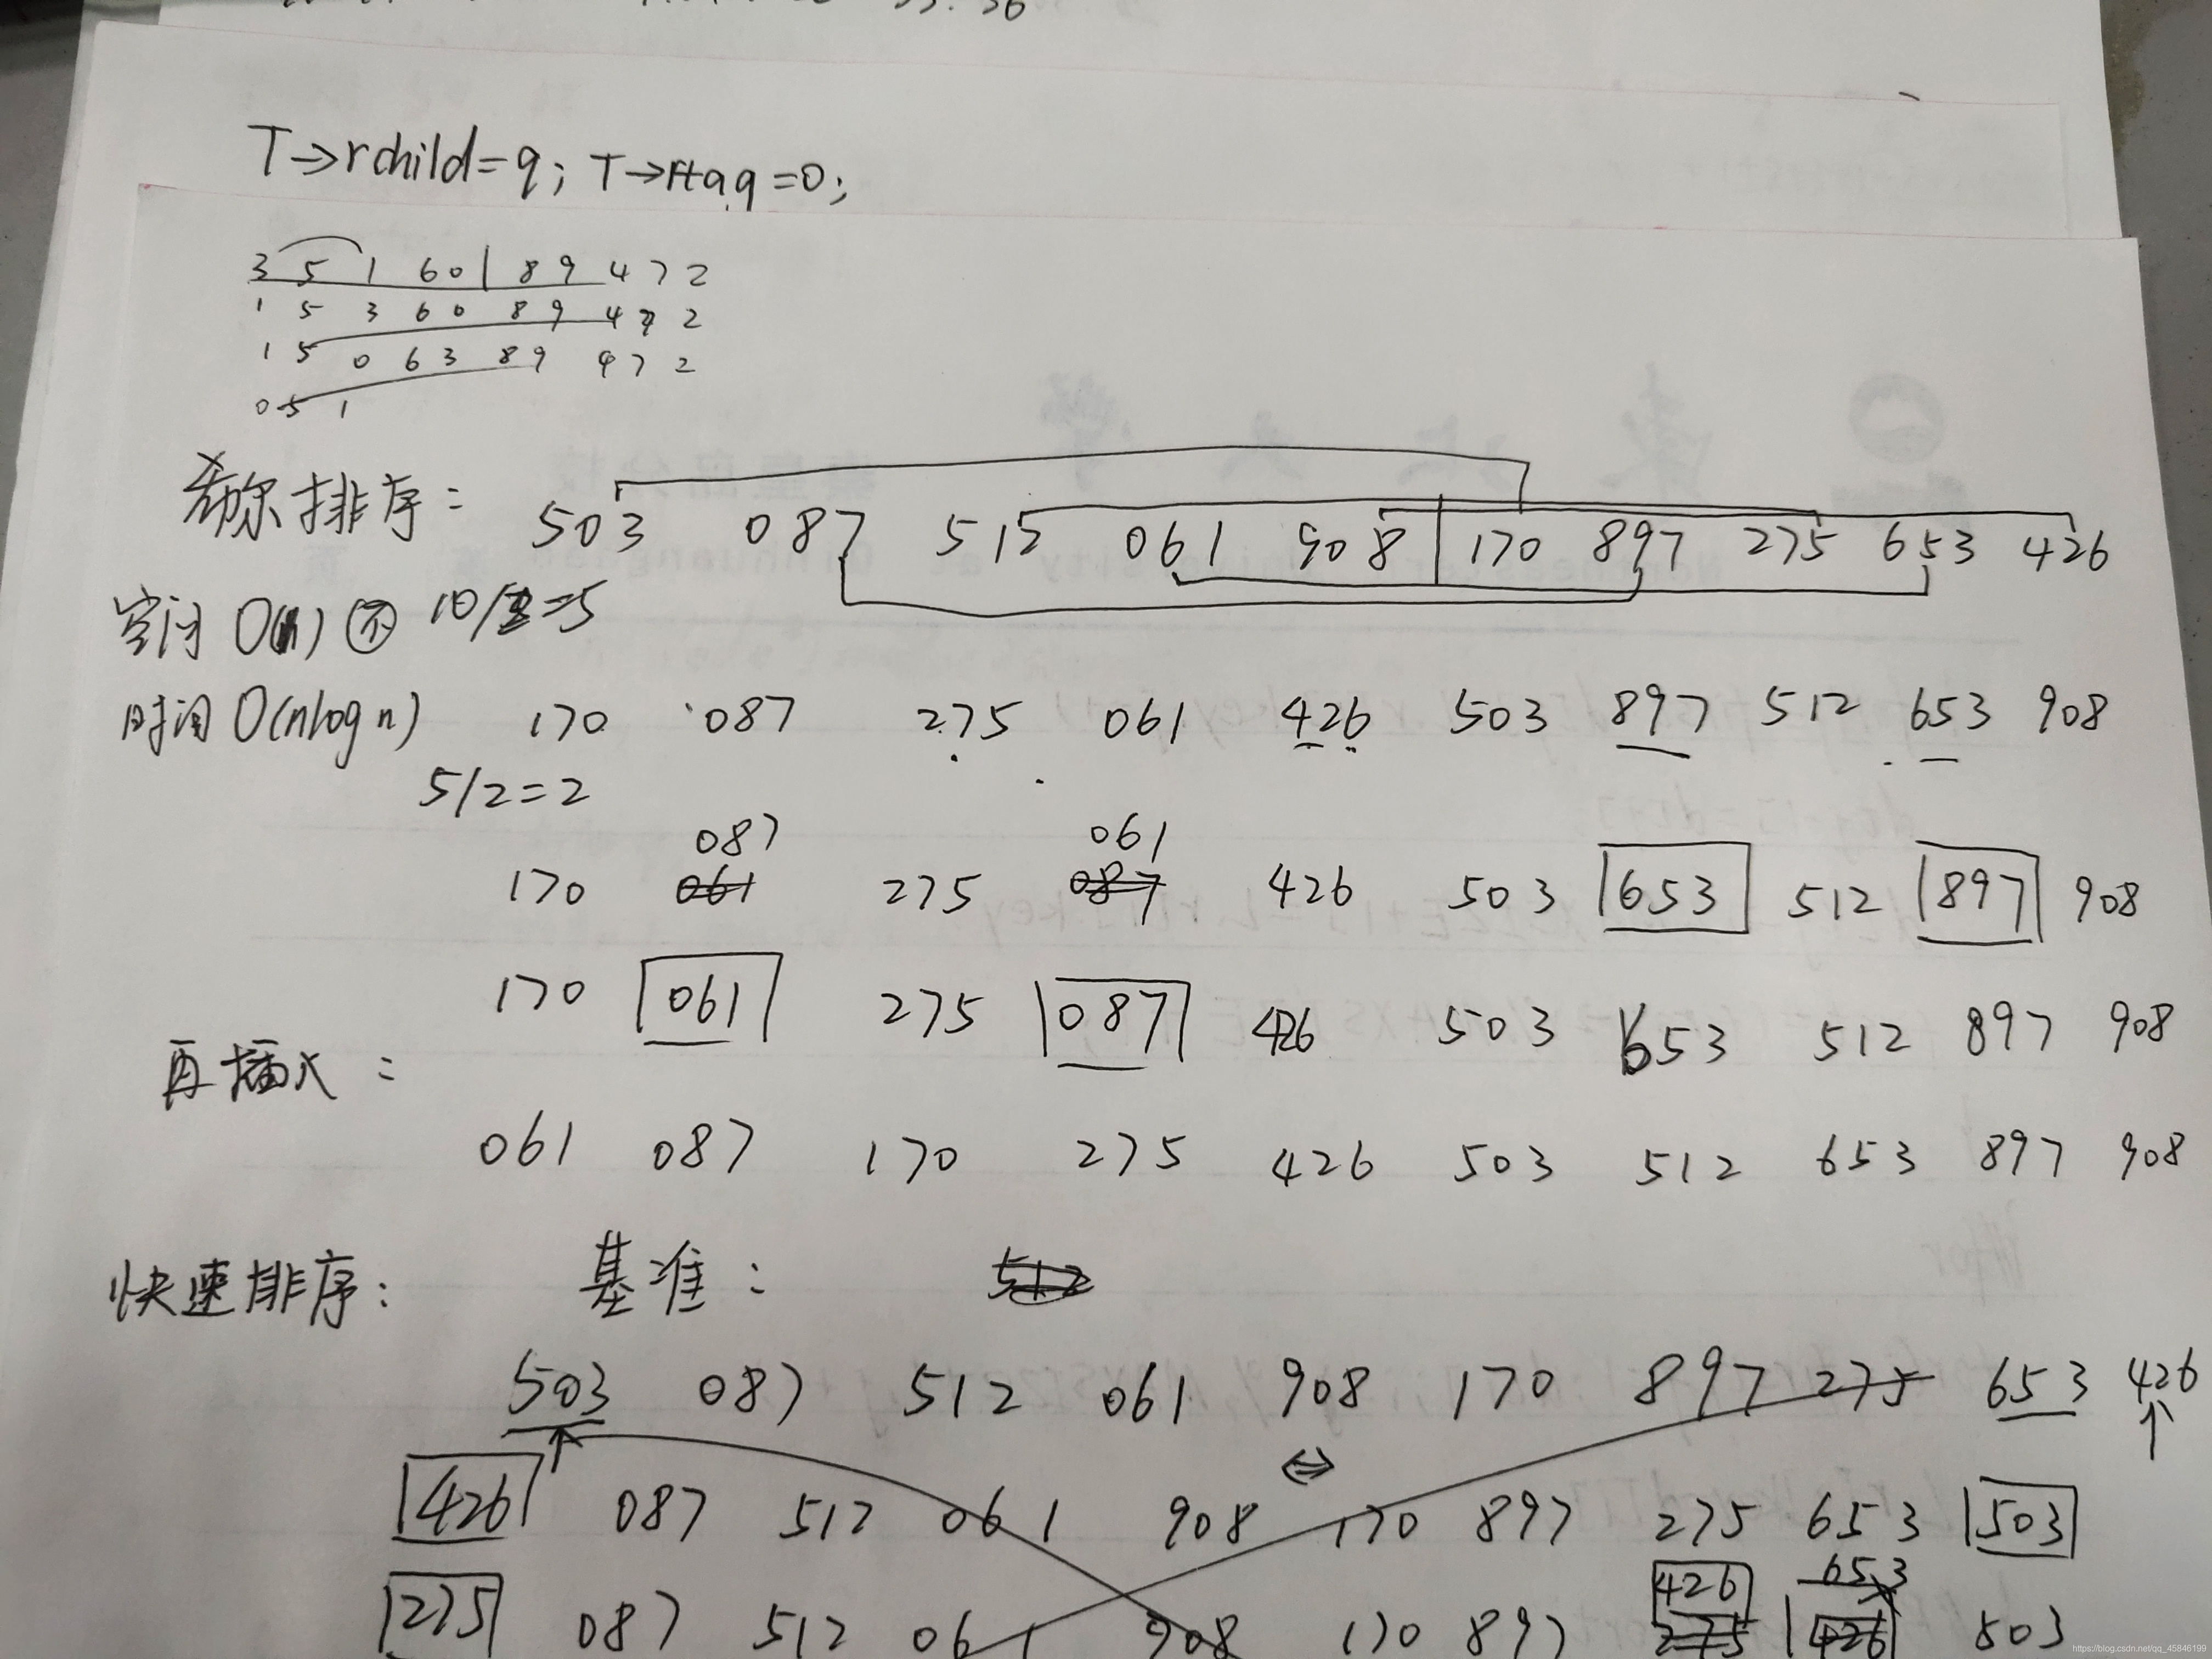 33. 36
T→rchild=q; T→rtag=0;
3 5 1 6 0 | 8 9 4 7 2
1 5 3 6 0 8 9 4 7 2
1 5 0 6 3 8 9 4 7 2
0 5 1
希尔排序: 503 087 512 061 908 | 170 897 275 653 426
空间 O(1) 不 10/2=5
时间 O(nlogn) 170 087 275 061 426 503 897 512 653 908
5/2=2
087 061
170 061 275 087 426 503 653 512 897 908
170 061 275 087 426 503 653 512 897 908
再插入:
061 087 170 275 426 503 512 653 897 908
快速排序: 基准: 512
503 087 512 061 908 170 897 275 653 426
426 087 512 061 908 170 897 275 653 503
426 653
275 087 512 061 908 170 897 275 426 503
https://blog.csdn.net/qq_45846199